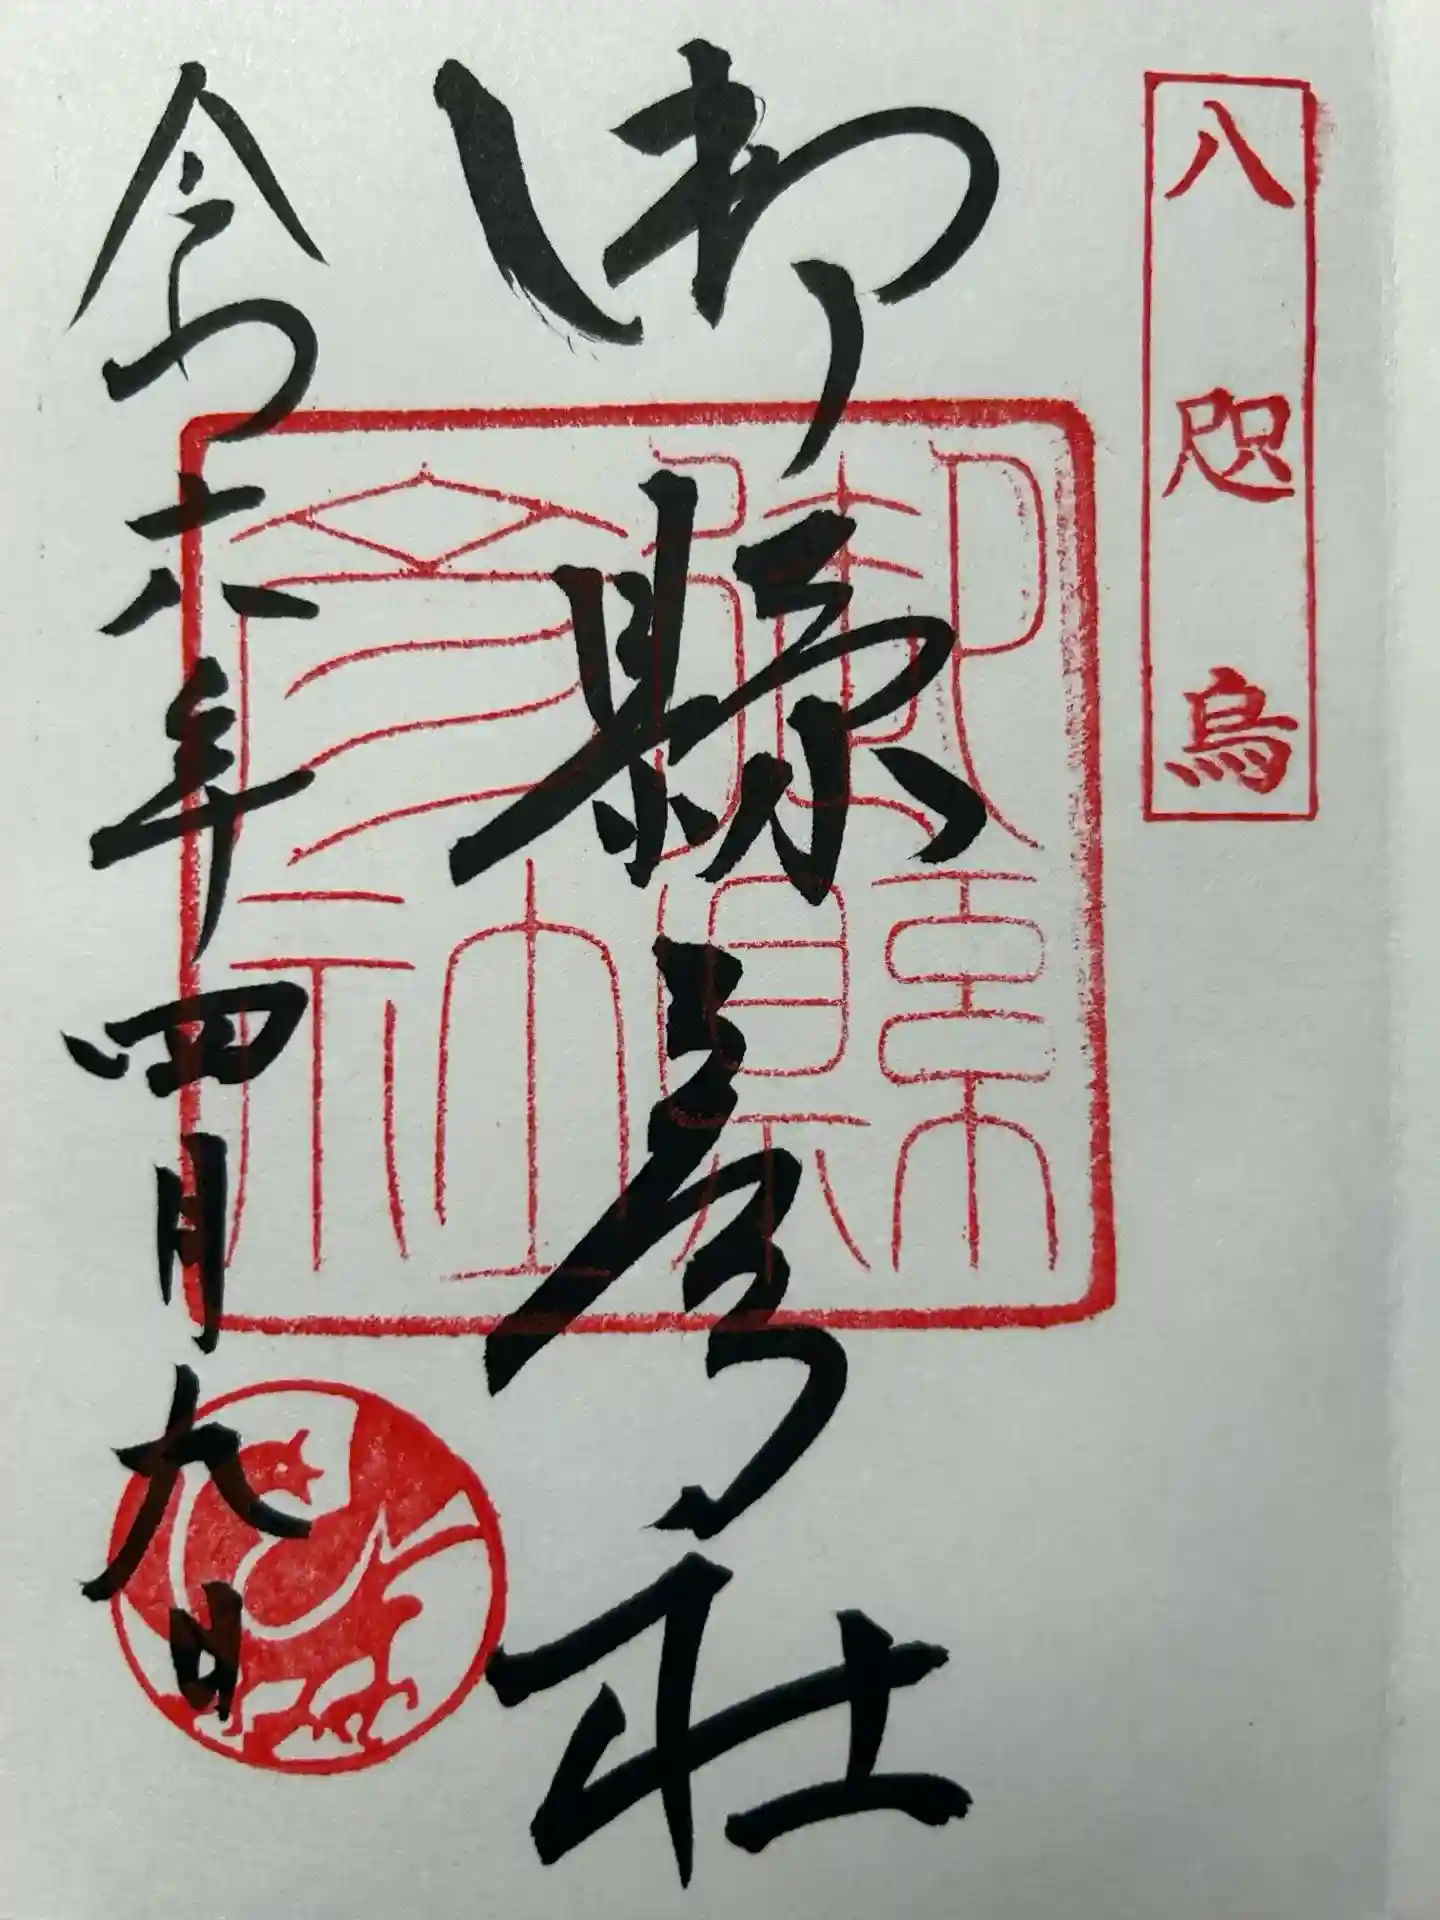 八咫烏
御縣彦社
御縣
彦社
令和六年四月九日